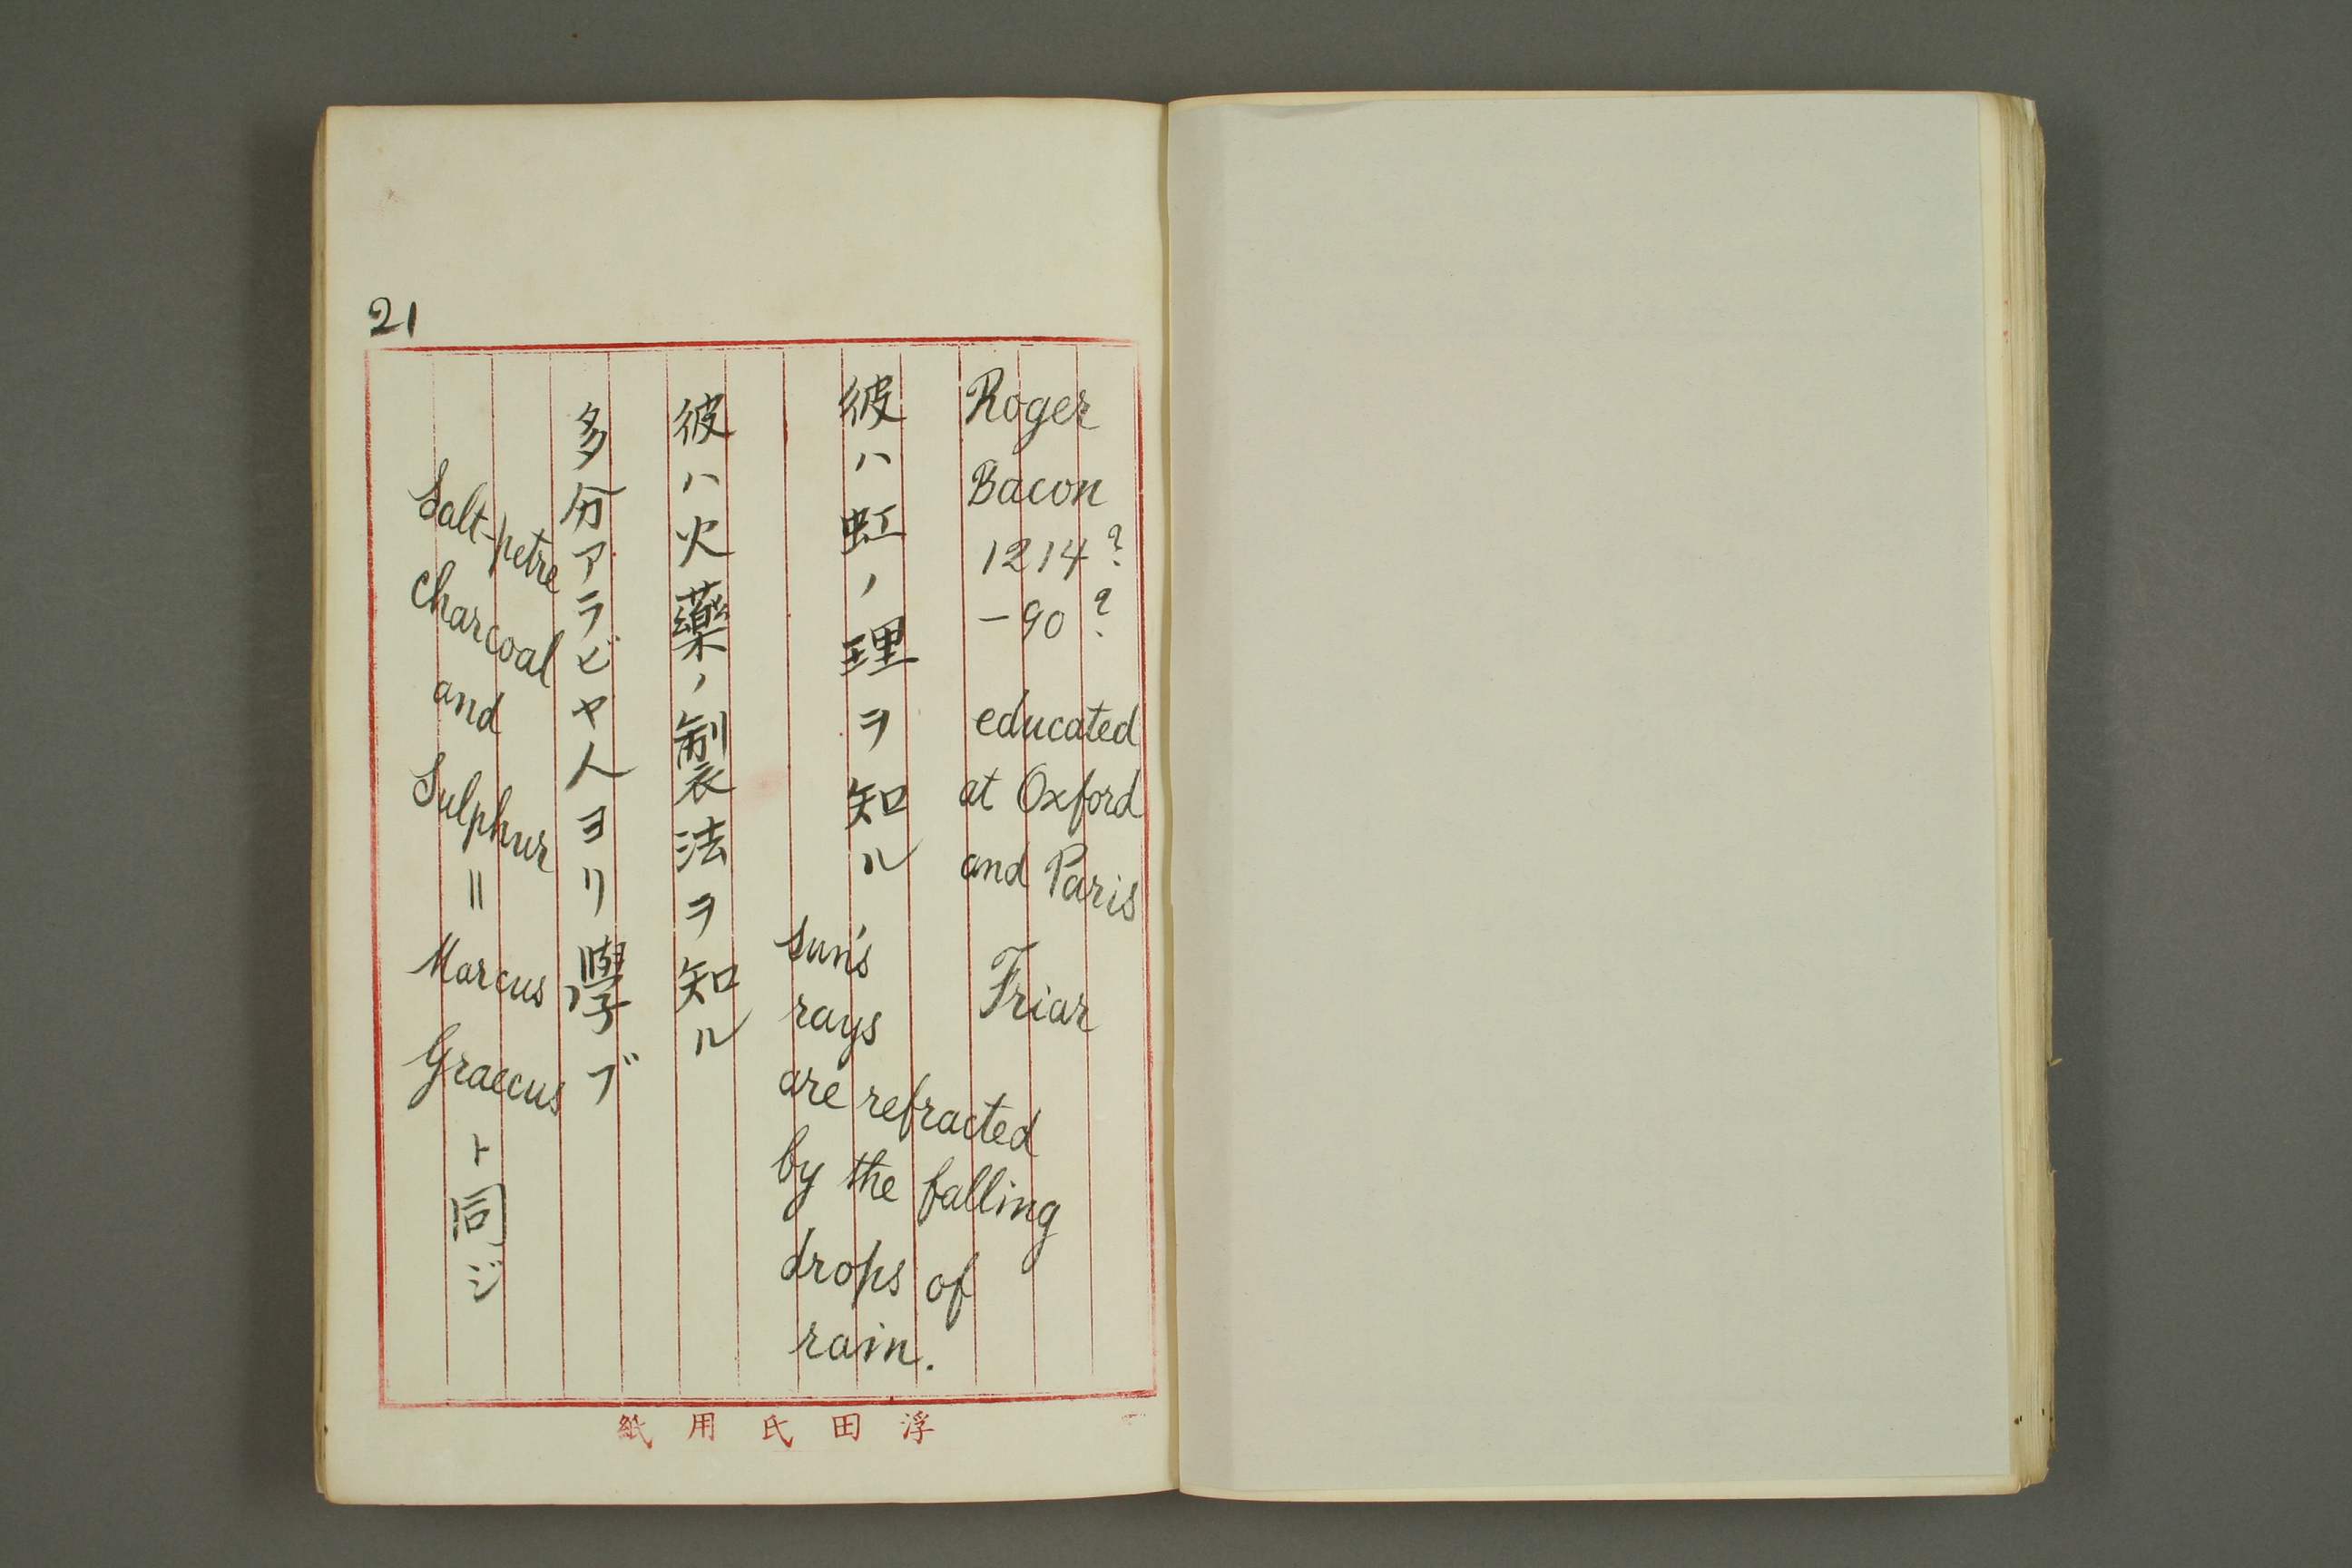 21
Roger
Bacon
1214?
-90?
educated
at Oxford
and Paris
Friar
彼ハ虹ノ理ヲ知ル
sun's
rays
are refracted
by the falling
drops of
rain.
彼ハ火藥ノ製法ヲ知ル
多分アラビヤ人ヨリ學ブ
Salt-petre
Charcoal
and
Sulphur
=
Marcus
Graecus
ト同ジ
浮田氏用紙